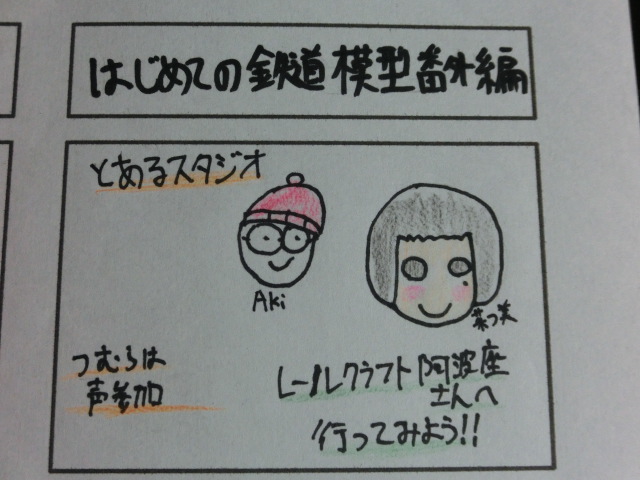 はじめての鉄道模型番外編
とあるスタジオ
Aki
菜つ美
つむらは
声参加
レールクラフト阿波座
さんへ
行ってみよう!!